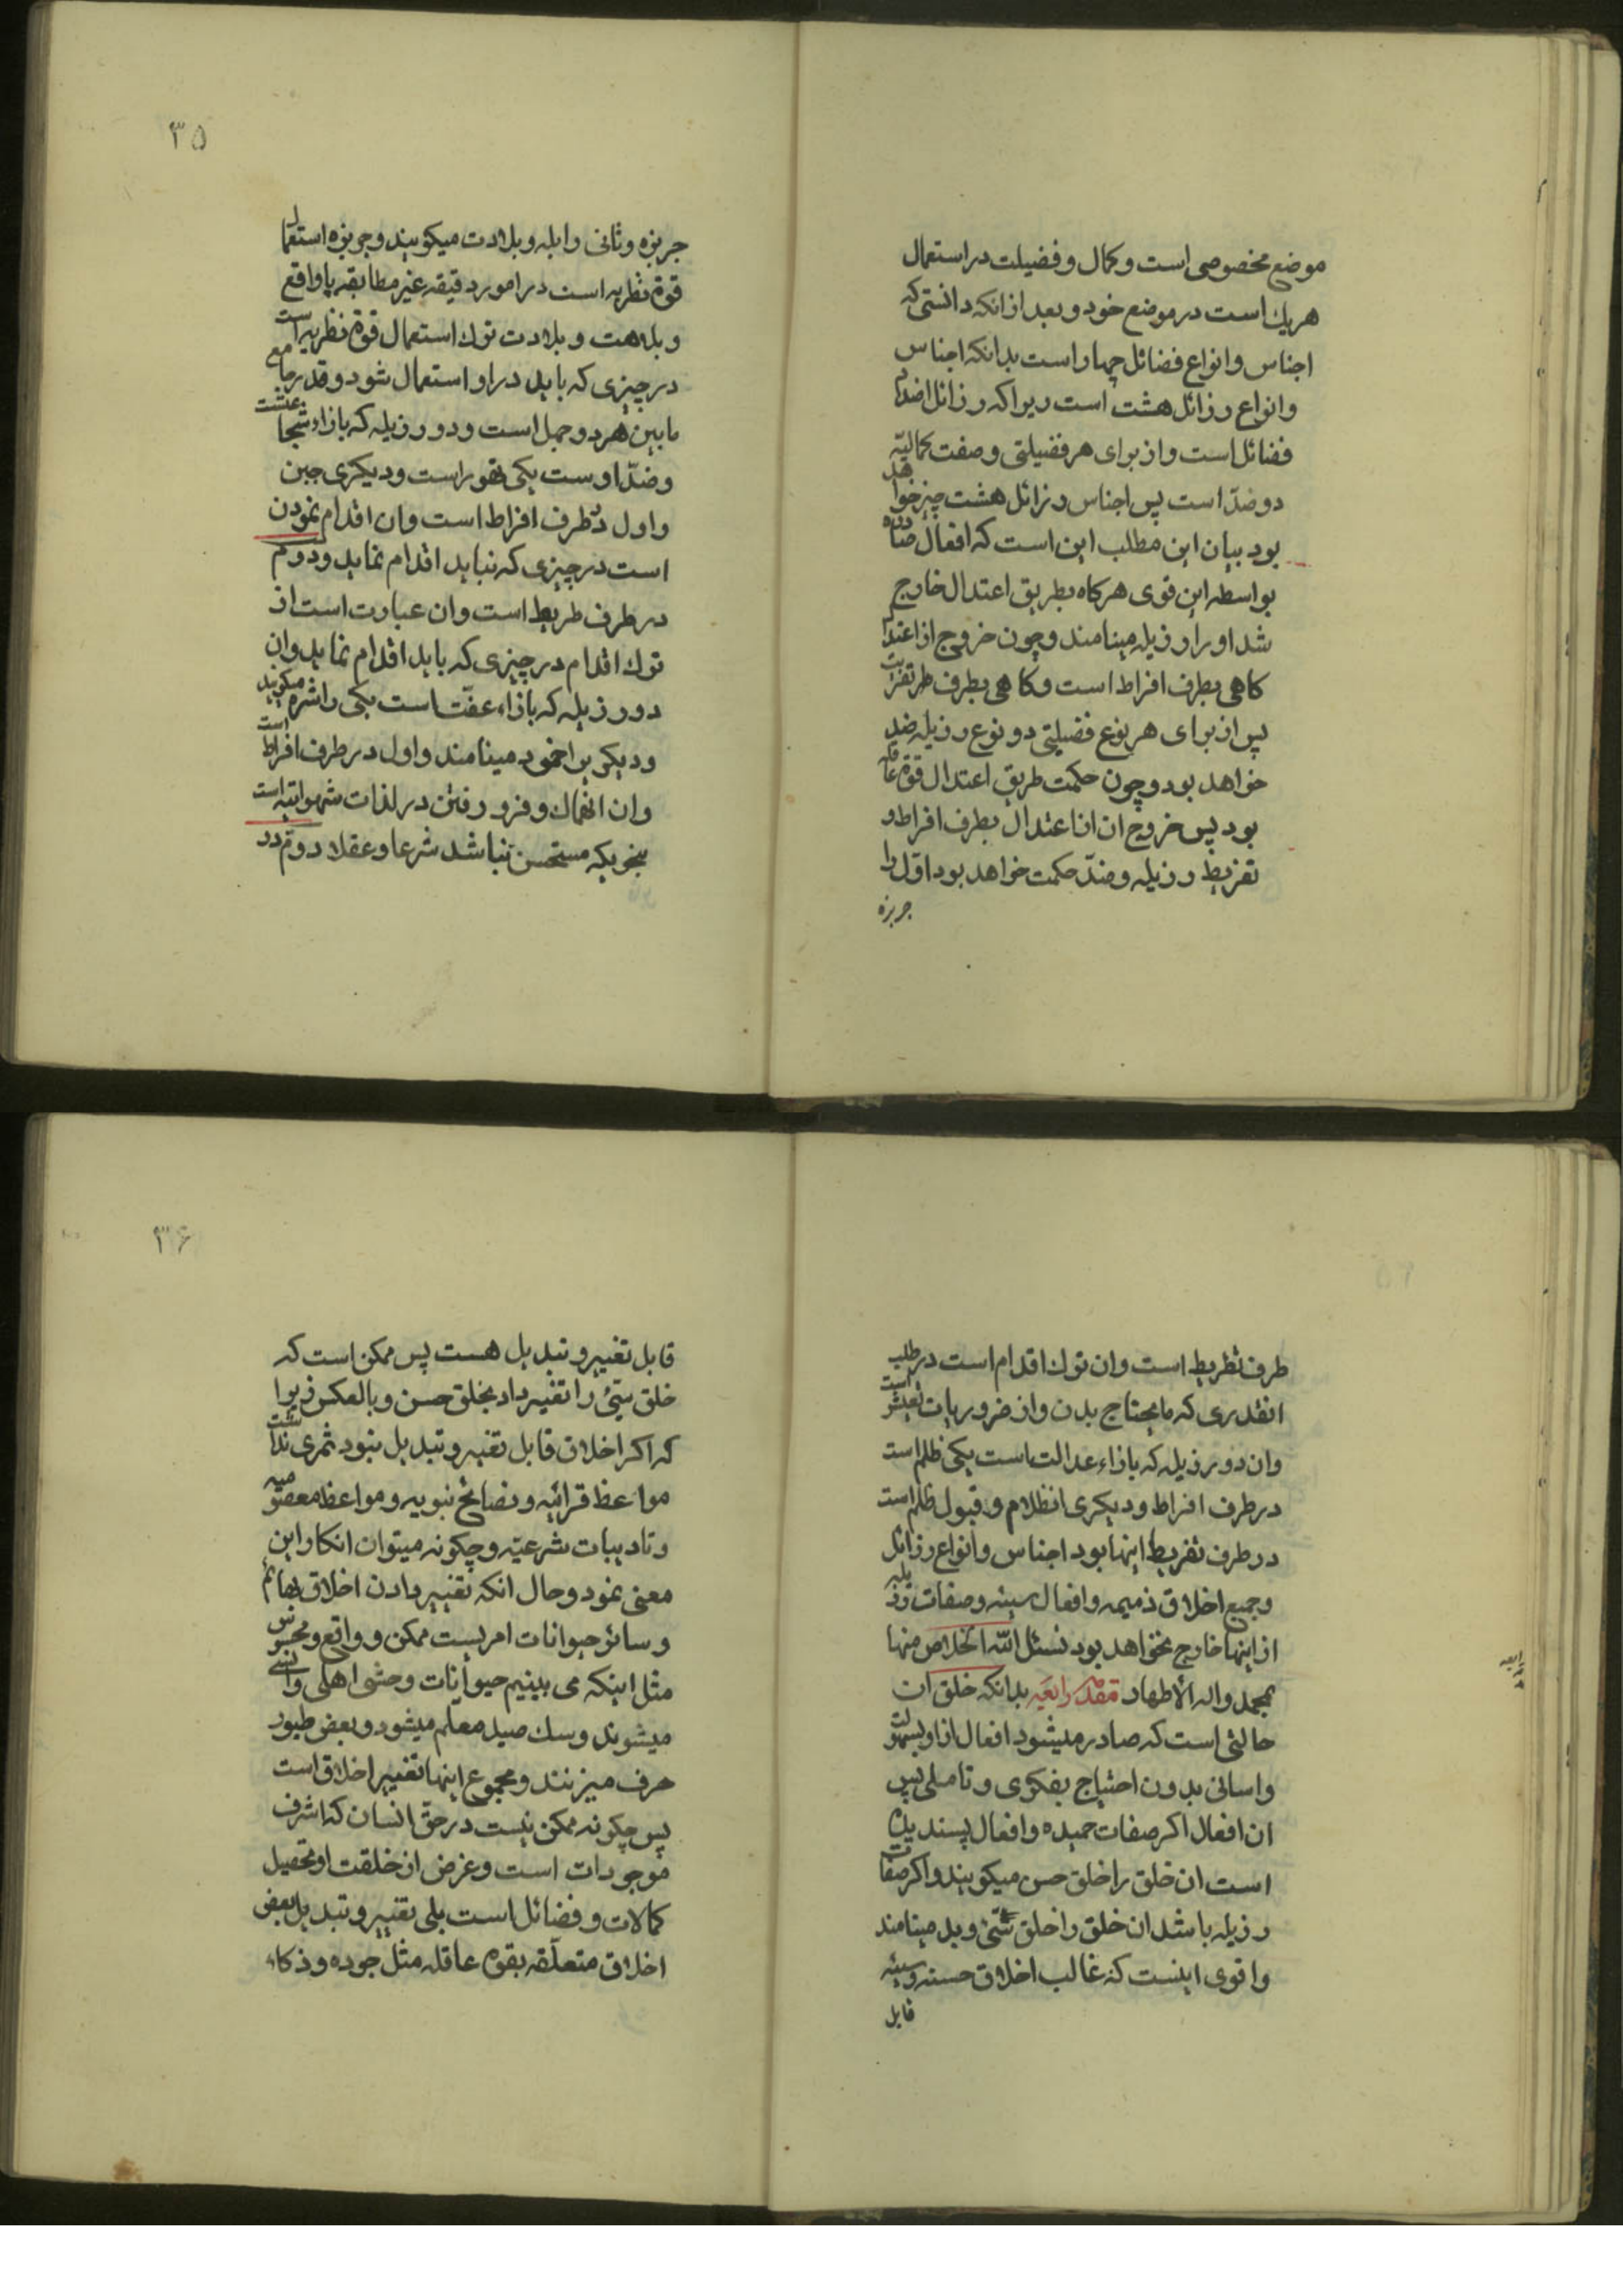 موضع مخصوصی است و کمال و فضیلت در استعمال
هریك است در موضع خود و بعد از انکه دانستی که
اجناس و انواع فضائل چهار است بدانکه اجناس
و انواع رزائل هشت است زیرا که رزائل اضداد
فضائل است و از برای هر فضیلتی و صفت کمالیّه
دو ضدّ است پس اجناس رزائل هشت چیز خواهد
بود بیان این مطلب این است که افعال صادره
بواسطه این قوی هرکاه بطریق اعتدال خارج
شد او را رزیله مینامند و چون خروج از اعتدال
کاهی بطرف افراط است و کاهی بطرف
پس از برای هر نوع فضیلتی دو نوع رزیله ضد
خواهد بود و چون حکمت طریق اعتدال قوة عاقله
بود پس خروج ان از اعتدال بطرف افراط و
تفریط رزیله و ضدّ حکمت خواهد بود اوّل را
جربزه
۳۵
جربزه و ثانی را بله و بلادت میکویند و جربزه استعمال
قوة نظریه است در امور دقیقه غیر مطابقه با واقع
و بلاهت و بلادت ترك استعمال قوة نظریه است
در چیزی که باید در او استعمال شود و قدر جامع
مابین هر دو جهل است و دو رزیله که بازاء شجاعتست
و ضدّ اوست یکی تهور است و دیکری جبن
و اول در طرف افراط است و ان اقدام نمودن
است در چیزی که نباید اقدام نماید و دوم
در طرف طریط است و ان عبارت است از
ترك اقدام در چیزی که باید اقدام نماید و ان
دو رزیله که بازاء عفّت است یکی را شره میکویند
و دیکری را خمود مینامند و اول در طرف افراط است
و ان انهماك و فرو رفتن در لذات شهوانیه است
بنحویکه مستحسن نباشد شرعا و عقلا دوّم در
طرف تفریط است و ان ترك اقدام است در طلب
انقدری که مایحتاج بدن و از ضروریات تعیش است
و ان دو رزیله که بازاء عدالت است یکی ظلم است
در طرف افراط و دیکری انظلام و قبول ظلم است
در طرف تفریط اینها بود اجناس و انواع رزائل
و جمیع اخلاق ذمیمه و افعال سیئه و صفات رذیله
از اینها خارج نخواهد بود نسئل الله الخلاص منها
بمحمد و اله الاطهار مقدمه رابعه بدانکه خلق ان
حالتی است که صادر میشود افعال از او بسهولت
و اسانی بدون احتیاج بفکری و تاملی پس
ان افعال اکر صفات حمیده و افعال پسندیده
است ان خلق را خلق حسن میکویند و اکر صفات
رزیله باشد ان خلق را خلق سیّئ و بد مینامند
و اقوی اینست که غالب اخلاق حسنه و سیئه
قابل
۳۶
قابل تغییر و تبدیل هست پس ممکن است که
خلق سیّئ را تغییر داد بخلق حسن و بالعکس زیرا
که اکر اخلاق قابل تغییر و تبدیل نبود ثمری نداشت
مواعظ قرانیه و نصایح نبویه و مواعظ معصومیه
و تادیبات شرعیّه و چکونه میتوان انکار این
معنی نمود و حال انکه تغییر دادن اخلاق بهائم
و سائر حیوانات امریست ممکن و واقع و محسوس
مثل اینکه می بینیم حیوانات وحشی اهلی و انسی
میشوند و سك صید معلم میشود و بعض طیور
حرف میزنند و مجموع اینها تغییر اخلاق است
پس چکونه ممکن نیست در حق انسان که اشرف
موجودات است و غرض از خلقت او تحصیل
کمالات و فضائل است بلی تغییر و تبدیل بعض
اخلاق متعلّقه بقوه عاقله مثل جوده و ذکاء